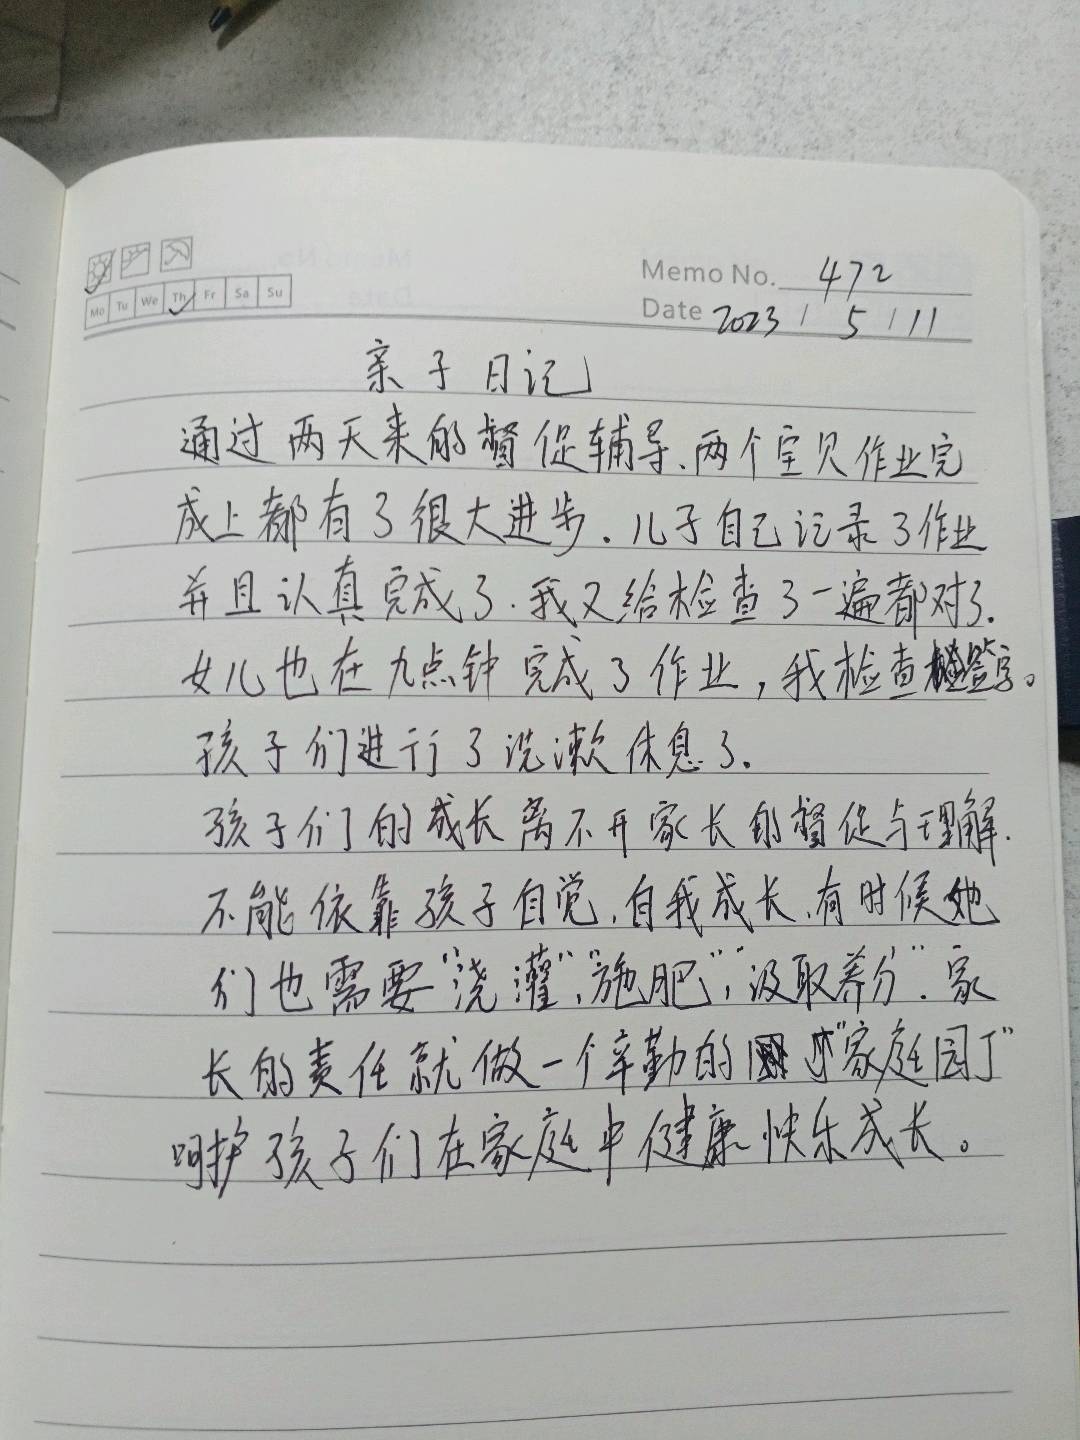 Memo No. 472
Mo Tu We Th Fr Sa Su
Date 2023 / 5 / 11
亲子日记
通过两天来的督促辅导、两个宝贝作业完
成上都有了很大进步.儿子自己记录了作业
并且认真完成了.我又给检查了一遍都对了.
女儿也在九点钟完成了作业,我检查签字。
孩子们进行了洗漱休息了.
孩子们的成长离不开家长的督促与理解.
不能依靠孩子自觉、自我成长、有时候她
们也需要"浇灌"、"施肥"、"汲取养分".家
长的责任就做一个辛勤的"家庭园丁"
呵护孩子们在家庭中健康快乐成长。